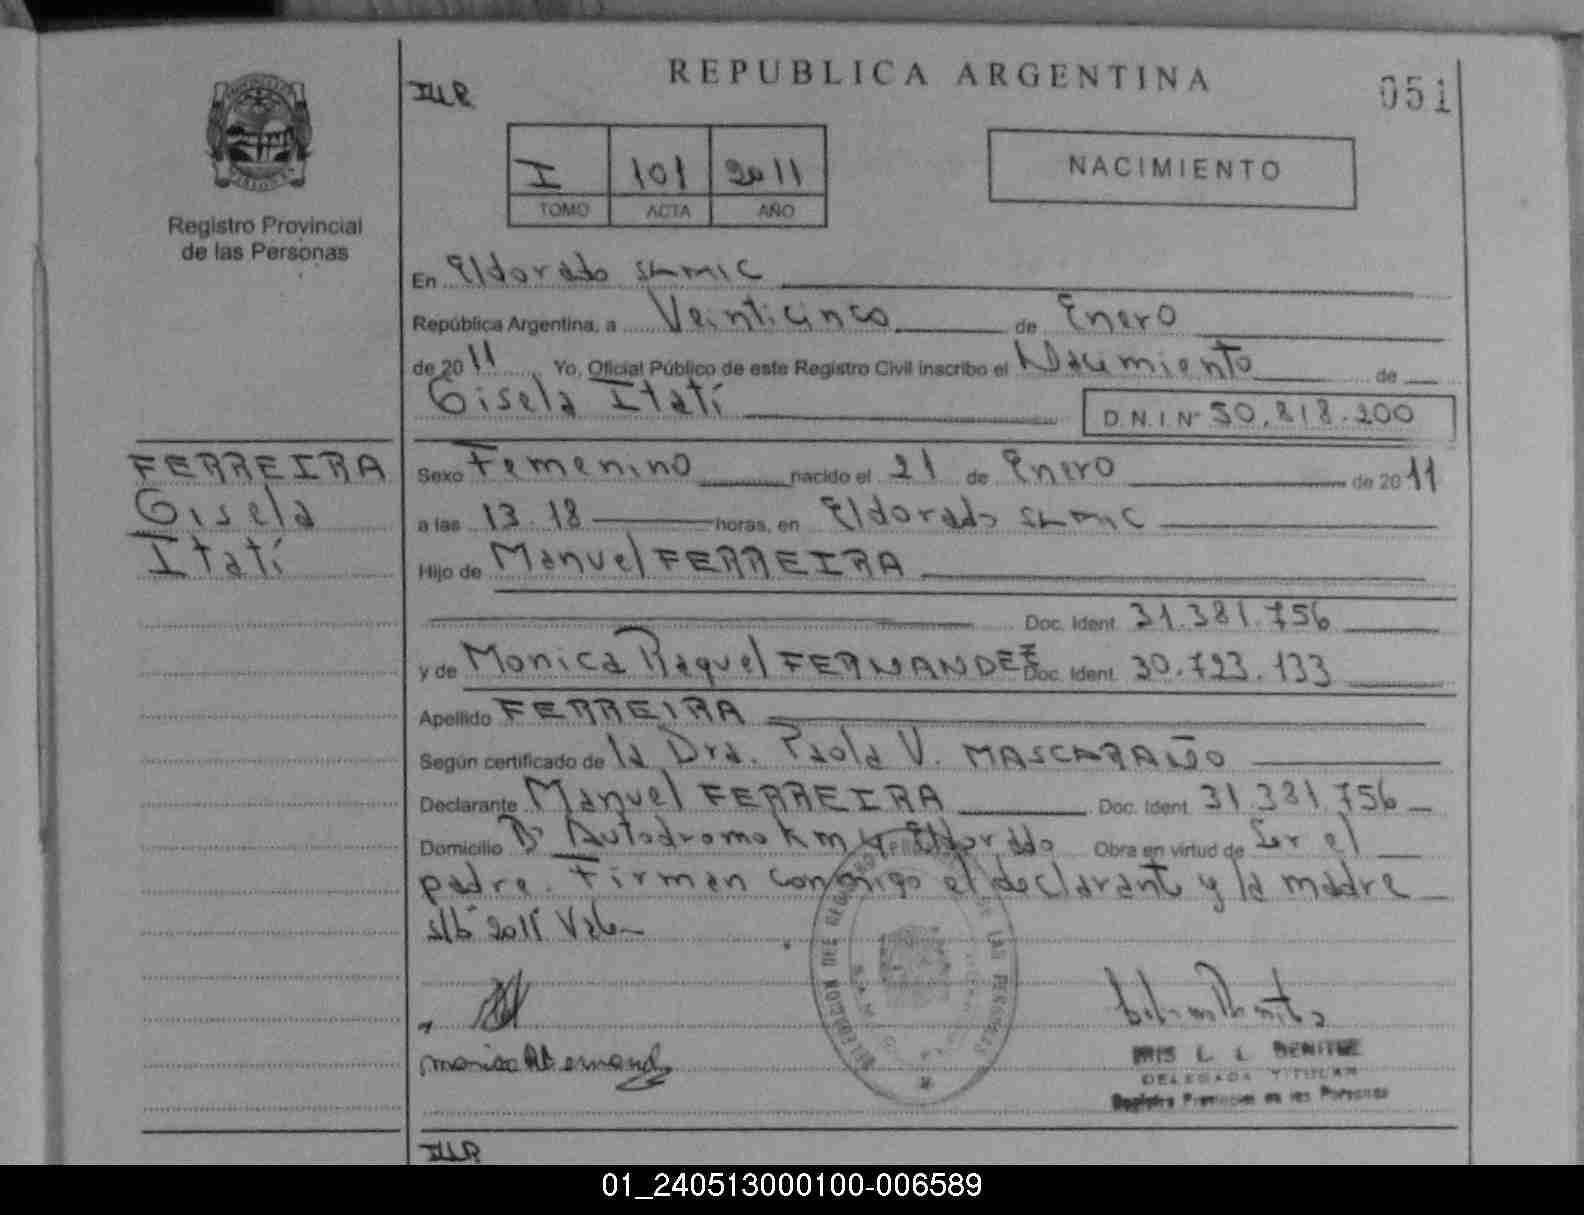 REPUBLICA ARGENTINA
051
ILLR
I 101 2011
TOMO ACTA AÑO
NACIMIENTO
Registro Provincial
de las Personas
En Eldorado SAMIC
República Argentina, a Veinticinco de Enero
de 2011 Yo, Oficial Público de este Registro Civil inscribo el Nacimiento de
Gisela Itatí
D.N.I. Nº 50.818.200
FERREIRA
Gisela
Itatí
Sexo Femenino nacido el 21 de Enero de 2011
a las 13.18 horas, en Eldorado SAMIC
Hijo de Manuel FERREIRA
Doc. Ident. 31.381.756
y de Monica Raquel FERNANDEZ Doc. Ident. 30.723.133
Apellido FERREIRA
Según certificado de la Dra. Paola V. MASCARAÑO
Declarante Manuel FERREIRA Doc. Ident. 31.381.756
Domicilio Bº Autodromo Km 4 Eldorado Obra en virtud de Ser el
padre. Firman conmigo el declarante y la madre
2011 Vale
DELEGACION DEL REGISTRO DE LAS PERSONAS
IRIS L. L. BENITEZ
DELEGADA TITULAR
Registro Provincial de las Personas
ILLR
01_240513000100-006589